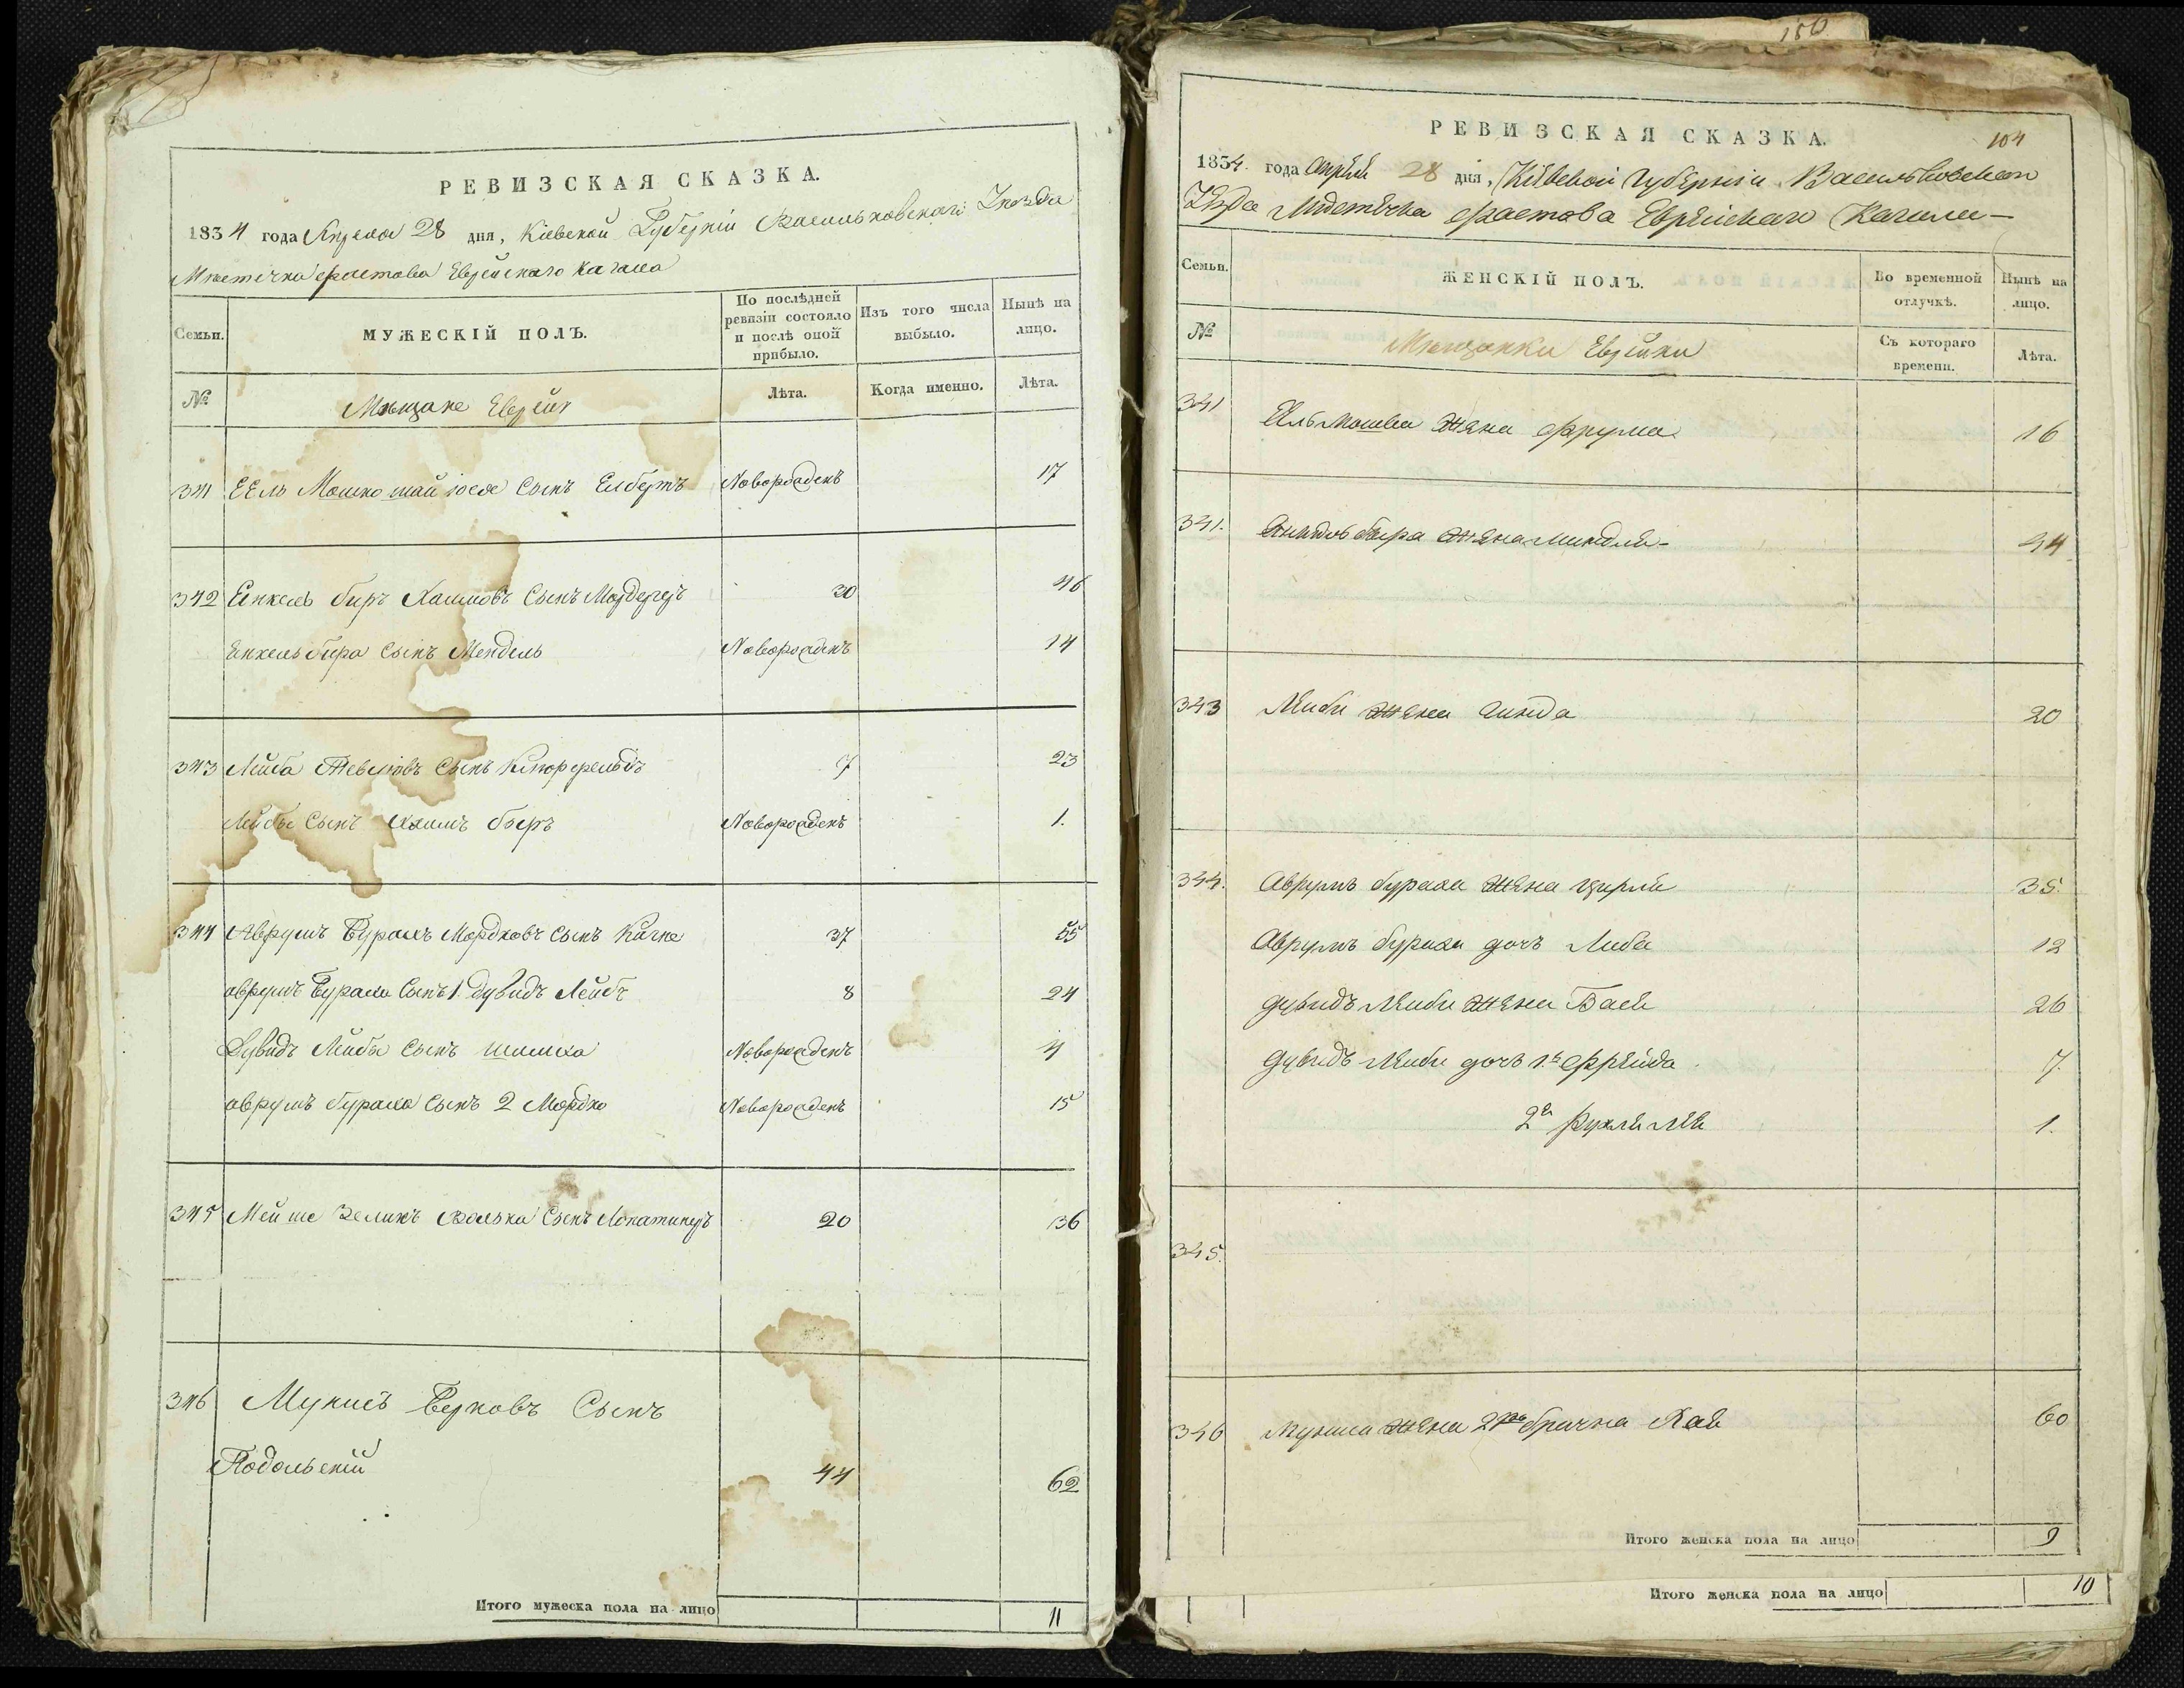 РЕВИЗСКАЯ СКАЗКА.
1834 года Апреля 28 дня, Кіевской Губерніи Васильковскаго Уезда
Мѣстечка Фастова Еврейскаго Кагала
Семьи.
МУЖЕСКІЙ ПОЛЪ.
По послѣдней ревизіи состояло и послѣ оной прибыло.
Изъ того числа выбыло.
Нынѣ на лицо.
№
Мѣщане Евреи
Лѣта.
Когда именно.
Лѣта.
341 Ель Мошко Сынъ Новорожденъ 17
342 Енкель Бир Хаимовъ Сынъ 30 46
Енкель Бера Сынъ Мендель Новорожденъ 14
343 Лейба Тевелювъ Сынъ 7 23
Лейбы Сынъ Хаимъ Беръ Новорожденъ 1.
344 Аврумъ Бурахъ Мордковъ Сынъ 37 55
аврумъ Бураха Сынъ 1. Дувидъ Лейбъ 8 24
Дувидъ Лейбы Сынъ Шлиома Новорожденъ 4
аврумъ бураха Сынъ 2 Мордко Новорожденъ 15
345 Мейше Зелинъ Волька Сынъ 20 36
346 Мунисъ Берковъ Сынъ
Подольскій 44 62
Итого мужеска пола на лицо 11
150
РЕВИЗСКАЯ СКАЗКА.
104
1834. года апреля 28 дня, Кіевской Губерніи Васильковскаго
Уѣзда Мѣстечка Фастова Еврейскаго Кагала—
Семьи.
ЖЕНСКІЙ ПОЛЪ.
Во временной отлучкѣ.
Нынѣ на лицо.
№
Мѣщанки Еврейки
Съ котораго времени.
Лѣта.
341 Ель Мошка Жена Фрума 16
341. Жена Миндля 44
343 Лейби Жена Гинда 20
344. Аврумъ бураха Жена Цирля 35.
Аврумъ бураха дочь Либа 12
дувидъ Лейби Жена Бася 26
дувидъ Лейби дочь 1я Фрейда 7.
2я Рухля Лея 1.
345.
346 Муниса Жена 2го брачна Хая 60
Итого женска пола на лицо 9
Итого женска пола на лицо 10